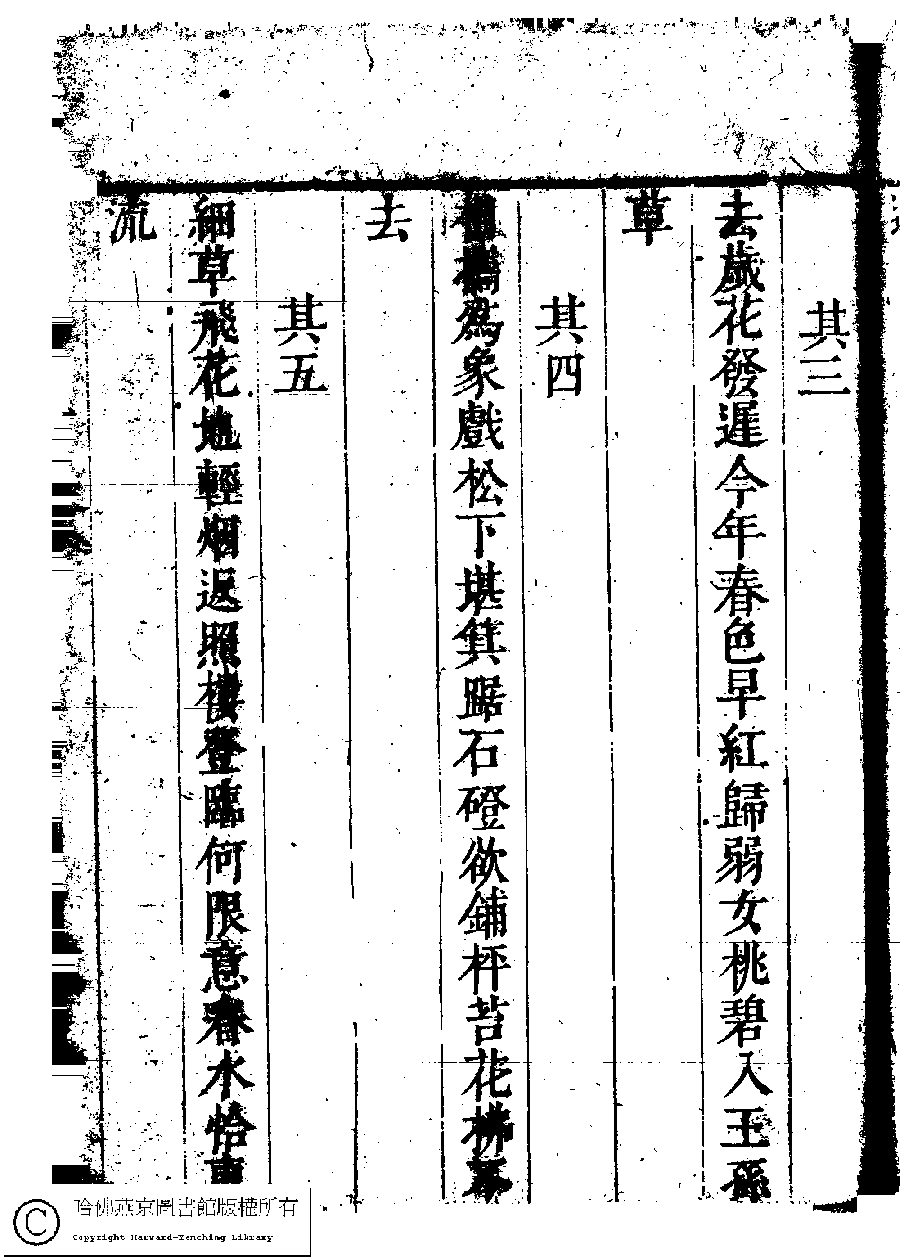 其三
去歲花發遲今年春色早紅歸弱女桃碧入王孫
草
其四
橘為象戲松下堪箕踞石磴欲鋪枰苔花拂不
去
其五
細草飛花地輕烟返照樓登臨何限意春水恰東
流
哈佛燕京圖書館版權所有
Copyright Harvard-Yenching Library